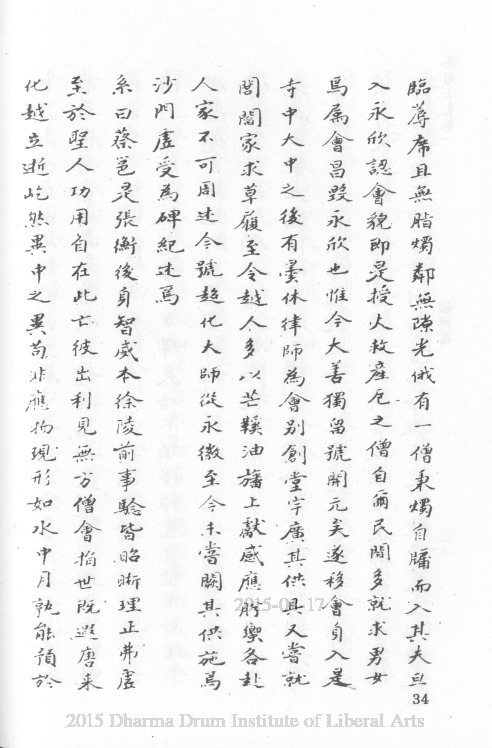 臨蓐席且無脂燭鄰無隙光俄有一僧秉燭自牖而入其夫旦
入永欣認會貌即是授火救產厄之僧自爾民間多就求男女
焉屬會昌毀永欣也惟今大善獨留號開元矣遂移會真入是
寺中大中之後有曇休律師為會別創堂宇廣其供具又嘗就
閭閻家求草屨至今越人多以芒鞵油旛上獻感應肸蠁各赴
人家不可周述今號超化大師從永徽至今未嘗闕其供施焉
沙門虛受為碑紀述焉
系曰蔡邕是張衡後身智威本徐陵前事驗皆昭晣理正弗虛
至於聖人功用自在此亡彼出利見無方僧會捐世既遐唐來
化越立逝屹然異中之異苟非應物現形如水中月孰能預於
34
2015-0
17
2015 Dharma Drum Institute of Liberal Arts